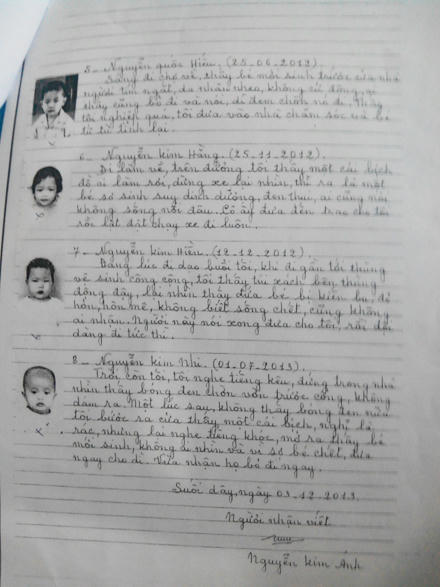 5- Nguyễn quốc Hiếu. (25-06-2012)
Sáng đi chợ về, thấy bé mới sinh trước cửa nhà
người tím ngắt, da nhăn nheo, không cử động, ai
thấy cũng bỏ đi và nói, đi đem chôn nó đi. Thấy
tội nghiệp quá, tôi đưa vào nhà chăm sóc và bé
từ từ tỉnh lại.
6- Nguyễn kim Hằng. (25-11-2012).
Đi làm về, trên đường tôi thấy một cái bịch
đồ ai làm rơi, dừng xe lại nhìn, thì ra là một
bé sơ sinh suy dinh dưỡng, đen thui, ai cũng nói
không sống nổi đâu. Cô ấy đưa đến trao cho tôi
rồi lật đật chạy xe đi luôn.
7- Nguyễn kim Hiền. (12-12-2012)
Đang lúc đi dạo buổi tối, khi đi gần tới thùng
vệ sinh công cộng, tôi thấy túi xách bên thùng
động đậy, lại nhìn thấy đứa bé bị kiến bu, dị
hờn, hôn mê, không biết sống chết, cũng không
ai nhận. Người này nói xong đưa cho tôi, rồi vội
vàng đi tức thì.
8- Nguyễn kim Nhi. (01-07-2013).
Trời còn tối, tôi nghe tiếng kêu, đứng trong nhà
nhìn thấy bóng đen chờn vờn trước cổng, không
dám ra. Một lúc sau, không thấy bóng đen nữa
tôi bước ra cửa thấy một cái bịch, nghĩ là
rác, nhưng lại nghe tiếng khóc, mở ra thấy bé
mới sinh, không ai nhìn và vì sợ bé chết, đưa
ngay cho dì. Vừa nhận họ bỏ đi ngay.
Suối dây, ngày 03-12-2013.
Người nhận viết
Nguyễn kim Ánh